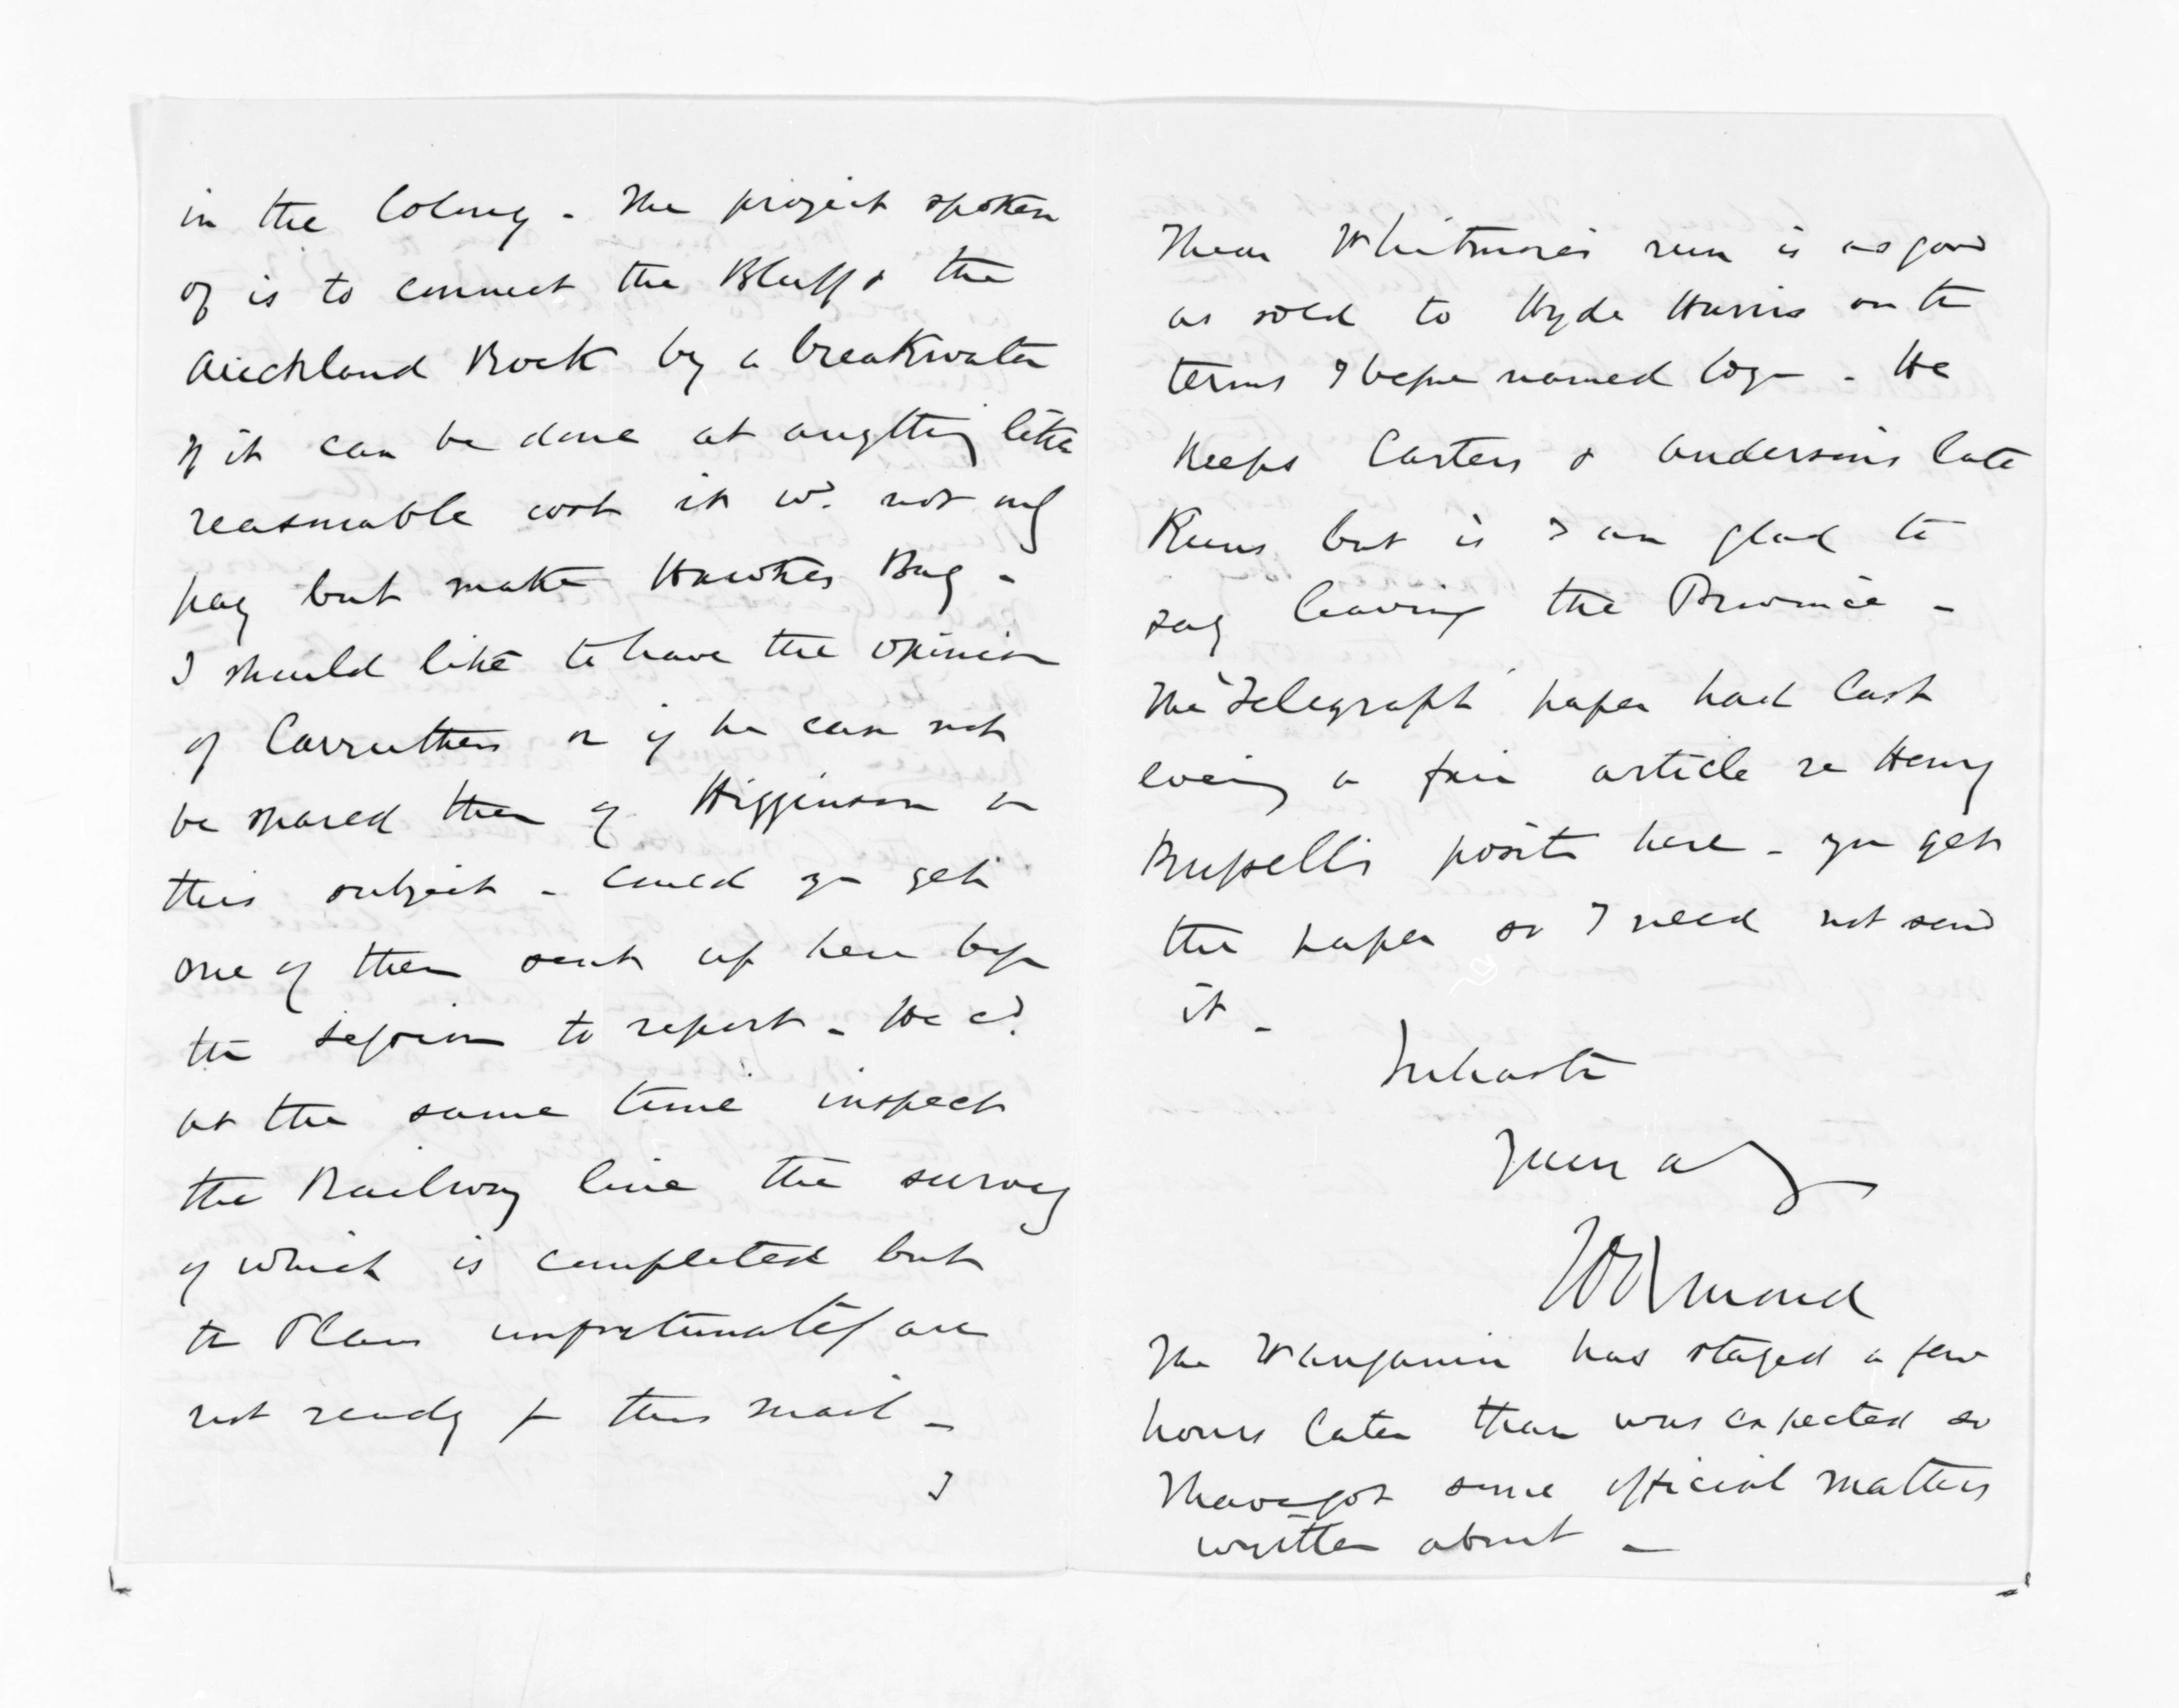 in the Colony - The project spoken
of is to connect the Bluff & the
Auckland Rock by a breakwater
if it can be done at anything like
reasonable cost it wd. not only
pay but make Hawkes Bay -
I should like to have the opinion
of Carruthers or if he can not
be spared then of Higginson on
this subject - Could you get
one of them sent up here before
the Session to report - He cd.
at the same time inspect
the Railway line the survey
of which is completed but
the Plans unfortunately are
not ready for this mail -
I
I hear Whitmore's run is as good
as sold to Hyde Harris on the
terms I before named to you - He
keeps Carters & Andersons late
Runs but is I am glad to
say leaving the Province -
The "Telegraph" paper had last
evening a fair article re Henry
Russell's posit. here - you get
the paper so I need not send
it -
In haste
Yours
JD Ormond
The Wanganui has stayed a few
hours later than was expected so
I have got some official matters
written about -